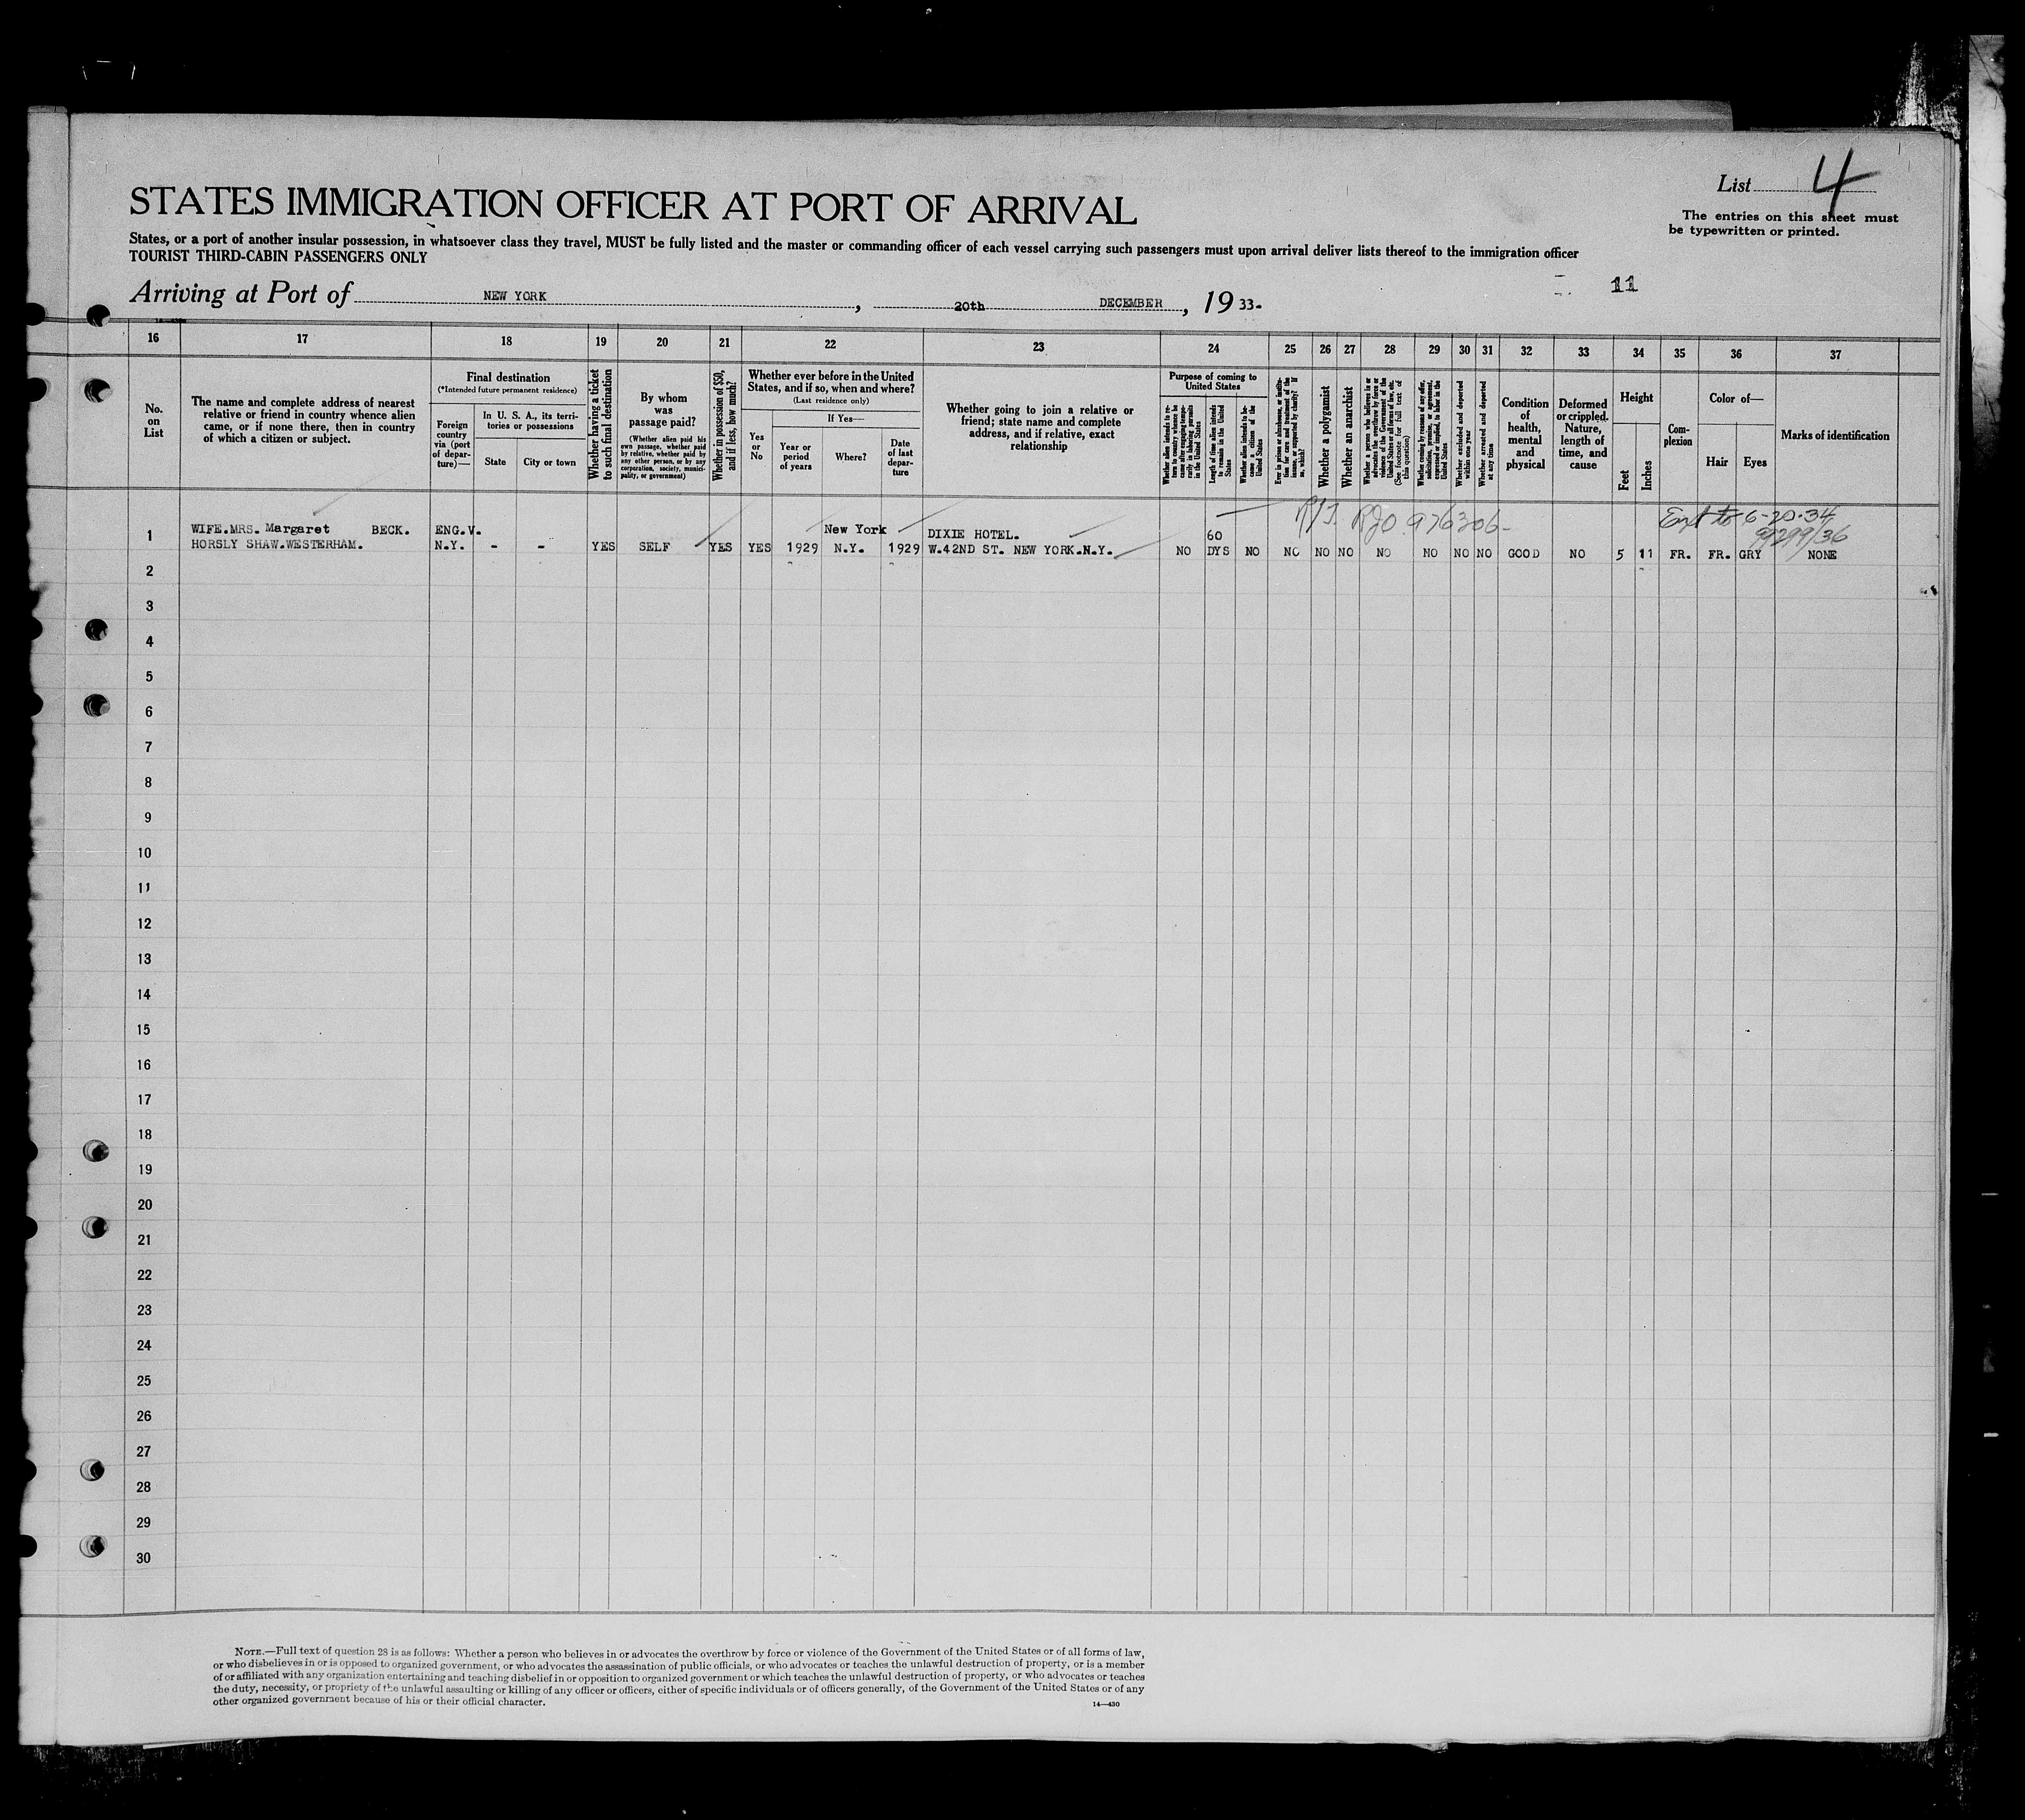 List 4
STATES IMMIGRATION OFFICER AT PORT OF ARRIVAL
The entries on this sheet must
be typewritten or printed.
States, or a port of another insular possession, in whatsoever class they travel, MUST be fully listed and the master or commanding officer of each vessel carrying such passengers must upon arrival deliver lists thereof to the immigration officer
TOURIST THIRD-CABIN PASSENGERS ONLY
11
Arriving at Port of NEW YORK, 20th DECEMBER, 1933.
16 17 18 19 20 21 22 23 24 25 26 27 28 29 30 31 32 33 34 35 36 37
No.
on
List
The name and complete address of nearest
relative or friend in country whence alien
came, or if none there, then in country
of which a citizen or subject.
Final destination
(*Intended future permanent residence)
Foreign
country
via (port
of depar-
ture)—
In U. S. A., its terri-
tories or possessions
State
City or town
Whether having a ticket
to such final destination
By whom
was
passage paid?
(Whether alien paid his
own passage, whether paid
by relative, whether paid by
any other person, or by any
corporation, society, munici-
pality, or government)
Whether in possession of $50,
and if less, how much?
Whether ever before in the United
States, and if so, when and where?
(Last residence only)
Yes
or
No
If Yes—
Year or
period
of years
Where?
Date
of last
depar-
ture
Whether going to join a relative or
friend; state name and complete
address, and if relative, exact
relationship
Purpose of coming to
United States
Whether alien intends to re-
turn to country whence he
came after engaging tempo-
rarily in laboring pursuits
in the United States
Length of time alien intends
to remain in the United
States
Whether alien intends to be-
come a citizen of the
United States
Ever in prison or almshouse, or institu-
tion for care and treatment of the
insane, or supported by charity? If
so, which?
Whether a polygamist
Whether an anarchist
Whether a person who believes in or
advocates the overthrow by force or
violence of the Government of the
United States or all forms of law, etc.
(See footnote for full text of
this question)
Whether coming by reasons of any offer,
solicitation, promise, or agreement,
expressed or implied, to labor in the
United States
Whether excluded and deported
within one year
Whether arrested and deported
at any time
Condition
of
health,
mental
and
physical
Deformed
or crippled.
Nature,
length of
time, and
cause
Height
Feet
Inches
Com-
plexion
Color of—
Hair
Eyes
Marks of identification
976306
6-20-34
99299/36
1 WIFE.MRS. Margaret BECK. ENG.V. New York DIXIE HOTEL. 60
HORSLY SHAW.WESTERHAM. N.Y. - - YES SELF YES YES 1929 N.Y. 1929 W.42ND ST. NEW YORK.N.Y. NO DYS NO NO NO NO NO NO NO NO GOOD NO 5 11 FR. FR. GRY NONE
2
3
4
5
6
7
8
9
10
11
12
13
14
15
16
17
18
19
20
21
22
23
24
25
26
27
28
29
30
NOTE.—Full text of question 28 is as follows: Whether a person who believes in or advocates the overthrow by force or violence of the Government of the United States or of all forms of law,
or who disbelieves in or is opposed to organized government, or who advocates the assassination of public officials, or who advocates or teaches the unlawful destruction of property, or is a member
of or affiliated with any organization entertaining and teaching disbelief in or opposition to organized government or which teaches the unlawful destruction of property, or who advocates or teaches
the duty, necessity, or propriety of the unlawful assaulting or killing of any officer or officers, either of specific individuals or of officers generally, of the Government of the United States or of any
other organized government because of his or their official character.
14—430